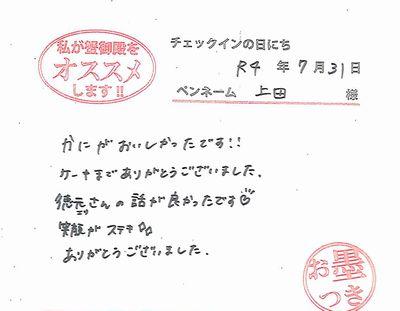 私が蟹御殿を
オススメ
します!!
チェックインの日にち
R4 年 7 月 31 日
ペンネーム 上田 様
かにがおいしかったです!!
ケーキまでありがとうございました。
徳元さんの話が良かったです
笑顔がステキ
ありがとうございました。
お墨
つき